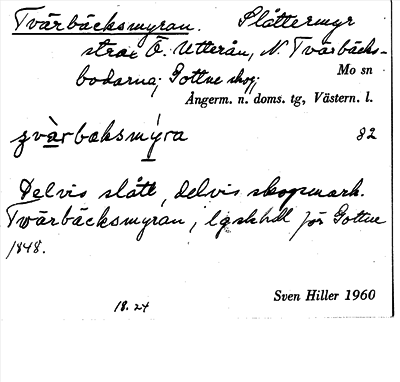 Tvärbäcksmyran. Slåttermyr
strax Ö. Utterån, N. Tvärbäcks-
bodarna; Gottne skog;
Mo sn
Ångerm. n. doms. tg, Västern. l.
tvàrbaksmýra 82
Delvis slått, delvis skogsmark.
Tvärbäcksmyran, lgskhdl för Gottne
1848.
18.24
Sven Hiller 1960